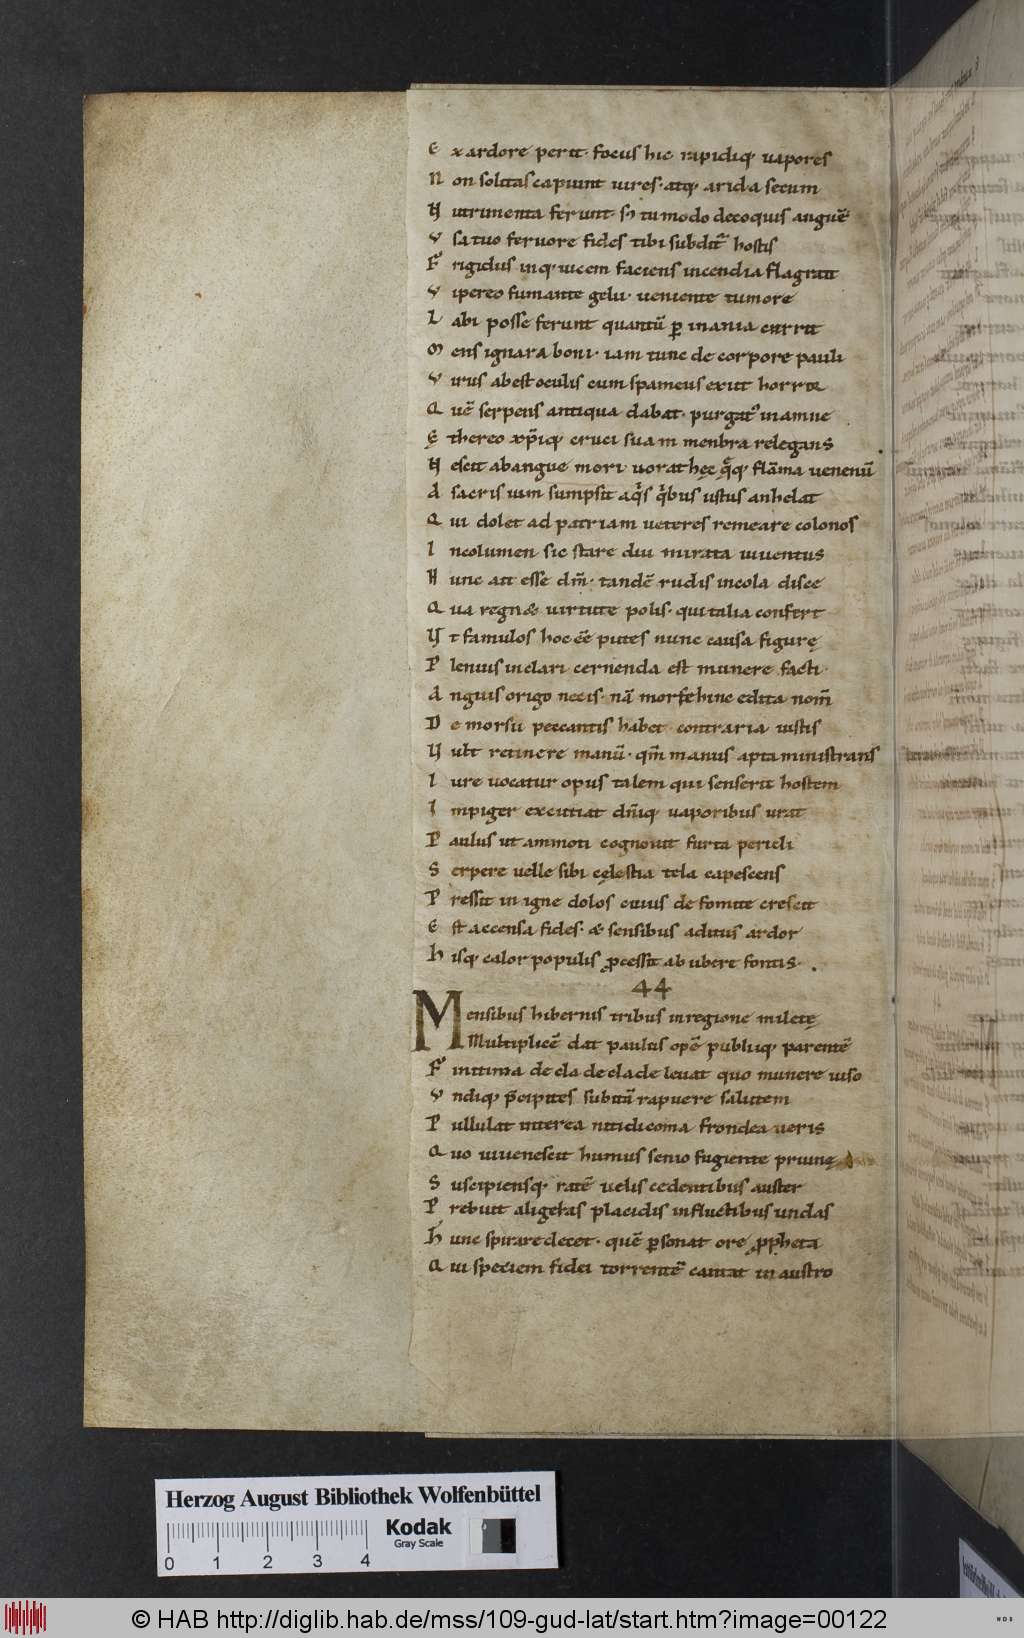 E x ardore perit · focus hic rapidiq; uapores
N on solitas capiunt uires · atq; arida secum
N utrimenta ferunt · s; tu modo decoquis anguē
V sa tuo feruore fides tibi subdit̄ hostis
F rigidus inq; uicem faciens incendia flagrat
V ipereo fumante gelu · ueniente tumore
L abi posse ferunt quantū p̱ inania currit
M ens ignara boni · iam tunc de corpore pauli
V irus abest oculis cum spameus exiit horror
Q uē serpens antiqua dabat · purgat᷒ in amne
Ę thereo xp̄iq; cruci sua in menbra relegans
N escit ab angue mori uorat hęc q̄q; flāma uenenū
A sacris iam sumpsit aq̇s q̇bus ustus anhelat
Q ui dolet ad patriam ueteres remeare colonos
I ncolumen sic stare diu mirata iuuentus
H unc ait esse dm̄ · tandē rudis incola disce
Q ua regn& uirtute polis · qui talia confert
V t famulos hoc ēē putes nunc causa figurę
P lenius in clari cernenda est munere facti ·
A nguis origo necis · nā mors ex hinc edita nom̄
D e morsu peccantis habet · contraria iustis
V ult retinere manū · qm̄ manus apta ministrans
I ure uocatur opus talem qui senserit hostem
I mpiger excutiat dn̄iq; uaporibus urat
P aulus ut ammoti cognouit furta pericli
S erpere uelle sibi cęlestia tela capescens
P ressit in igne dolos cuius de fomite crescit
E st accensa fides · & sensibus aditus ardor
H isq; calor populis ꝓcessit ab ubere fontis ·
44
Mensibus hibernis tribus in regione miletę
Multiplicē dat paulus opē publiiq; parentē
F initima de clade leuat quo munere uiso
V ndiq; p̄cipites subitā rapuere salutem
P ullulat interea nitidi coma frondea ueris
Q uo iuuenescit humus senio fugiente pruinę
S uscipiensq; ratē uelis cedentibus auster
P rebuit aligeras placidis in fluctibus undas
H unc spirare decet · quē p̱sonat ore ꝓpheta
Q ui speciem fidei torrentē cantat in austro
Herzog August Bibliothek Wolfenbüttel
Kodak
Gray Scale
0 1 2 3 4
© HAB http://diglib.hab.de/mss/109-gud-lat/start.htm?image=00122
WDB